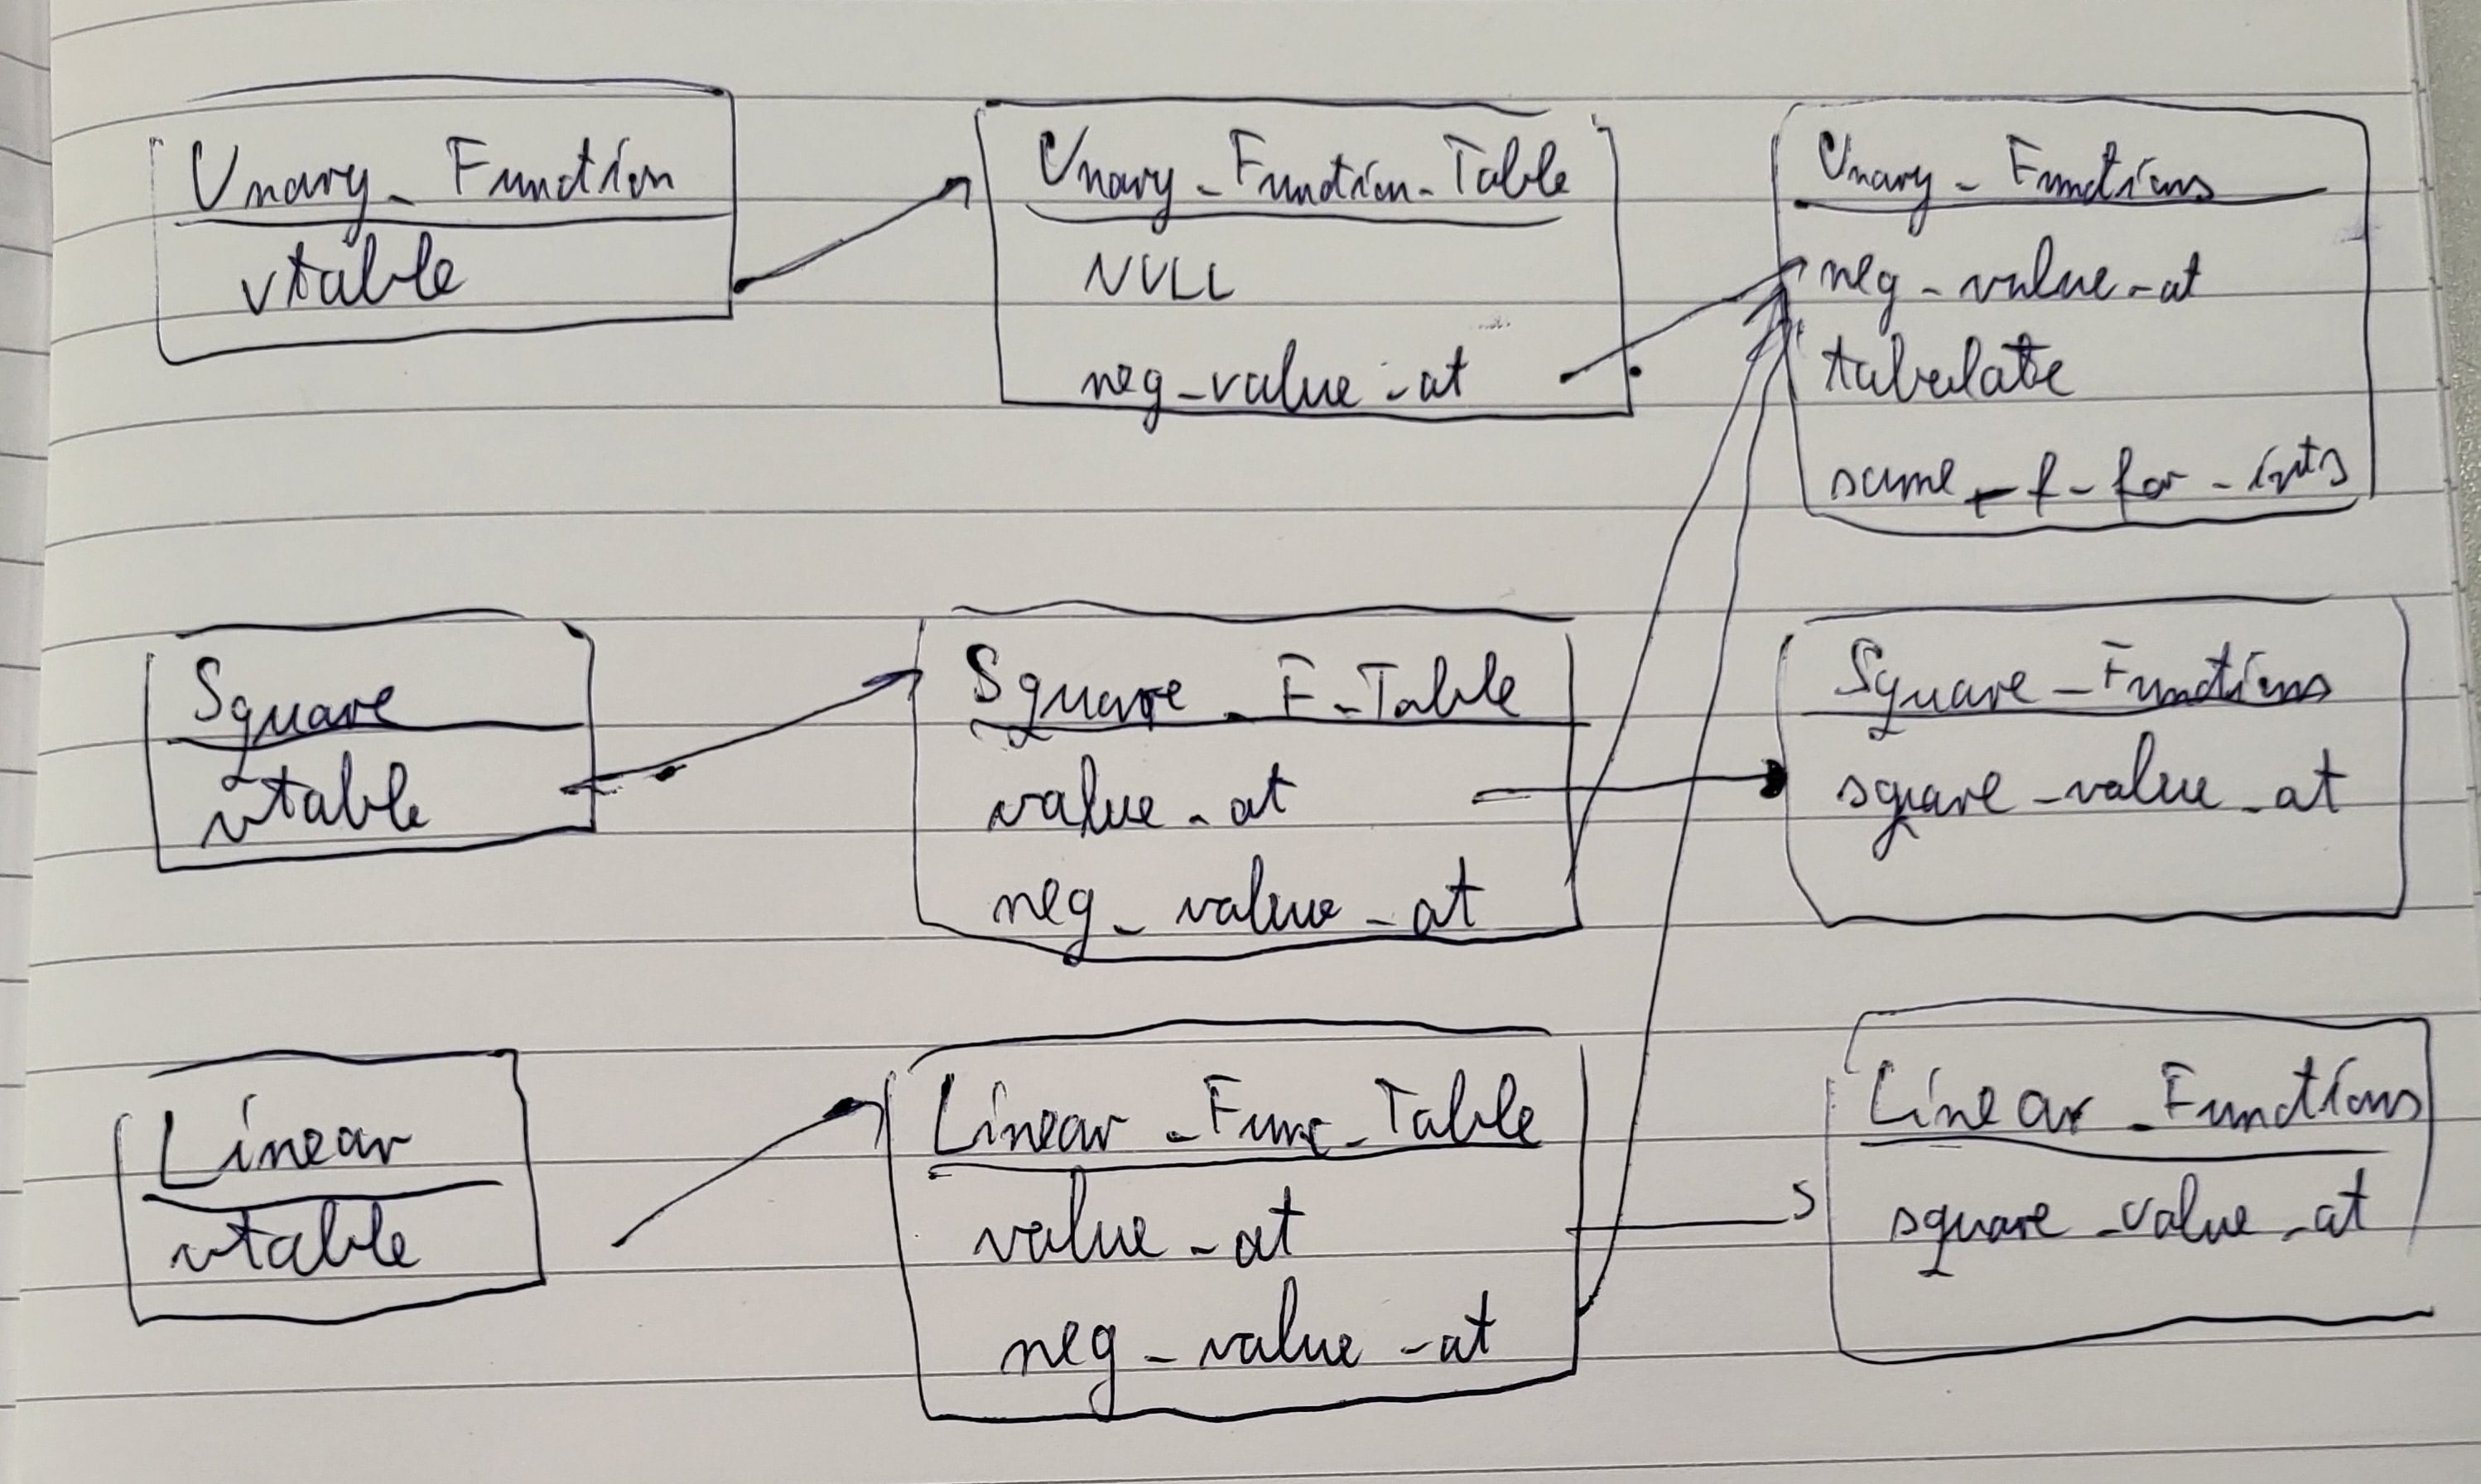 Unary_Function
vtable
Unary_Function_Table
NULL
neg_value_at
Unary_Functions
neg_value_at
tabulate
same_f_for_ints
Square
vtable
Square_F_Table
value_at
neg_value_at
Square_Functions
square_value_at
Linear
vtable
Linear_Func_Table
value_at
neg_value_at
Linear_Functions
square_value_at